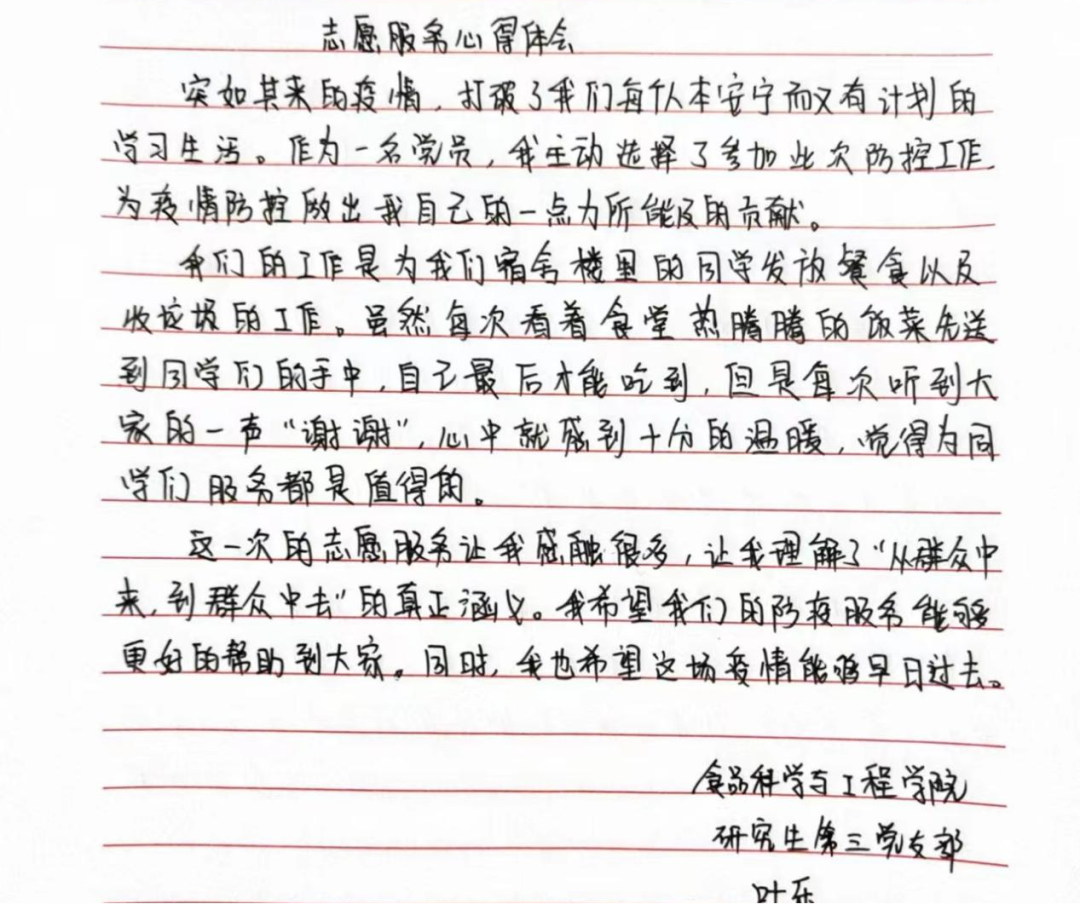 志愿服务心得体会
突如其来的疫情，打破了我们每个人本安宁而又有计划的
学习生活。作为一名党员，我主动选择了参加此次防控工作，
为疫情防控做出我自己的一点力所能及的贡献。
我们的工作是为我们宿舍楼里的同学发放餐食以及
收垃圾的工作。虽然每次看着食堂热腾腾的饭菜先送
到同学们的手中，自己最后才能吃到，但是每次听到大
家的一声“谢谢”，心中就感到十分的温暖，觉得为同
学们服务都是值得的。
这一次的志愿服务让我感触很多，让我理解了“从群众中
来，到群众中去”的真正涵义。我希望我们的防疫服务能够
更好的帮助到大家。同时，我也希望这场疫情能够早日过去。
食品科学与工程学院
研究生第三党支部
叶乐